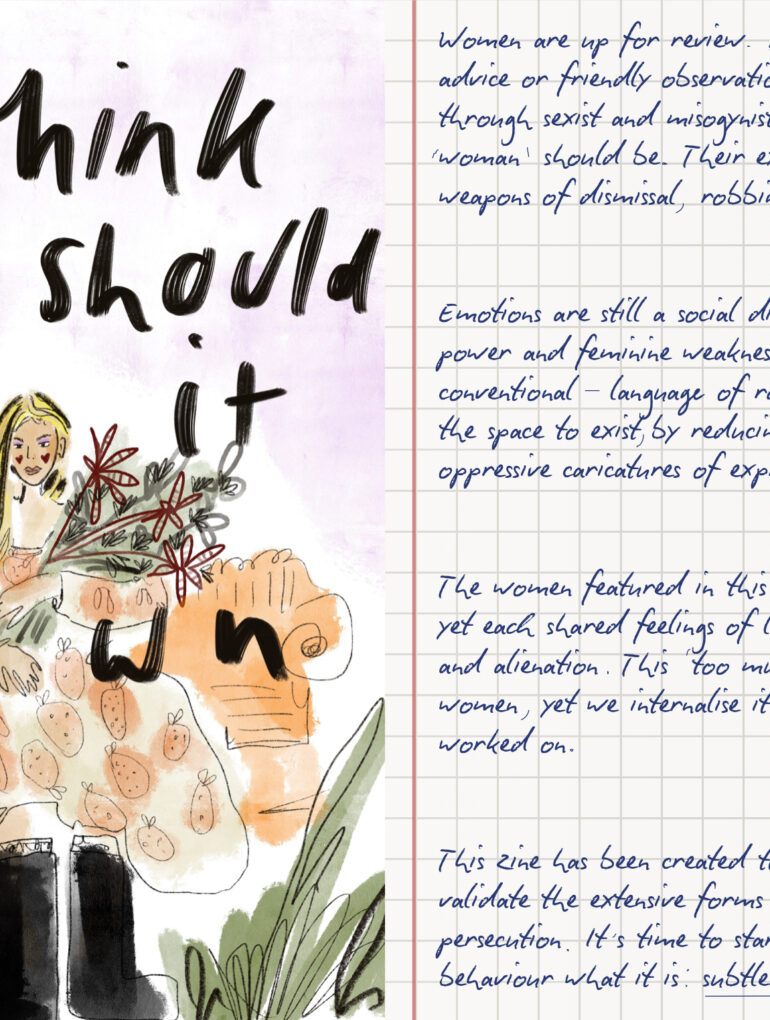 hink
should
it
w n
Women are up for review.
advice or friendly observatio
through sexist and misogynist
'woman' should be. Their ex
weapons of dismissal, robbin
Emotions are still a social di
power and feminine weaknes
conventional – language of ra
the space to exist, by reducin
oppressive caricatures of exp
The women featured in this
yet each shared feelings of l
and alienation. This 'too mu
women, yet we internalise it
worked on.
This zine has been created t
validate the extensive forms
persecution. It's time to star
behaviour what it is: subtle